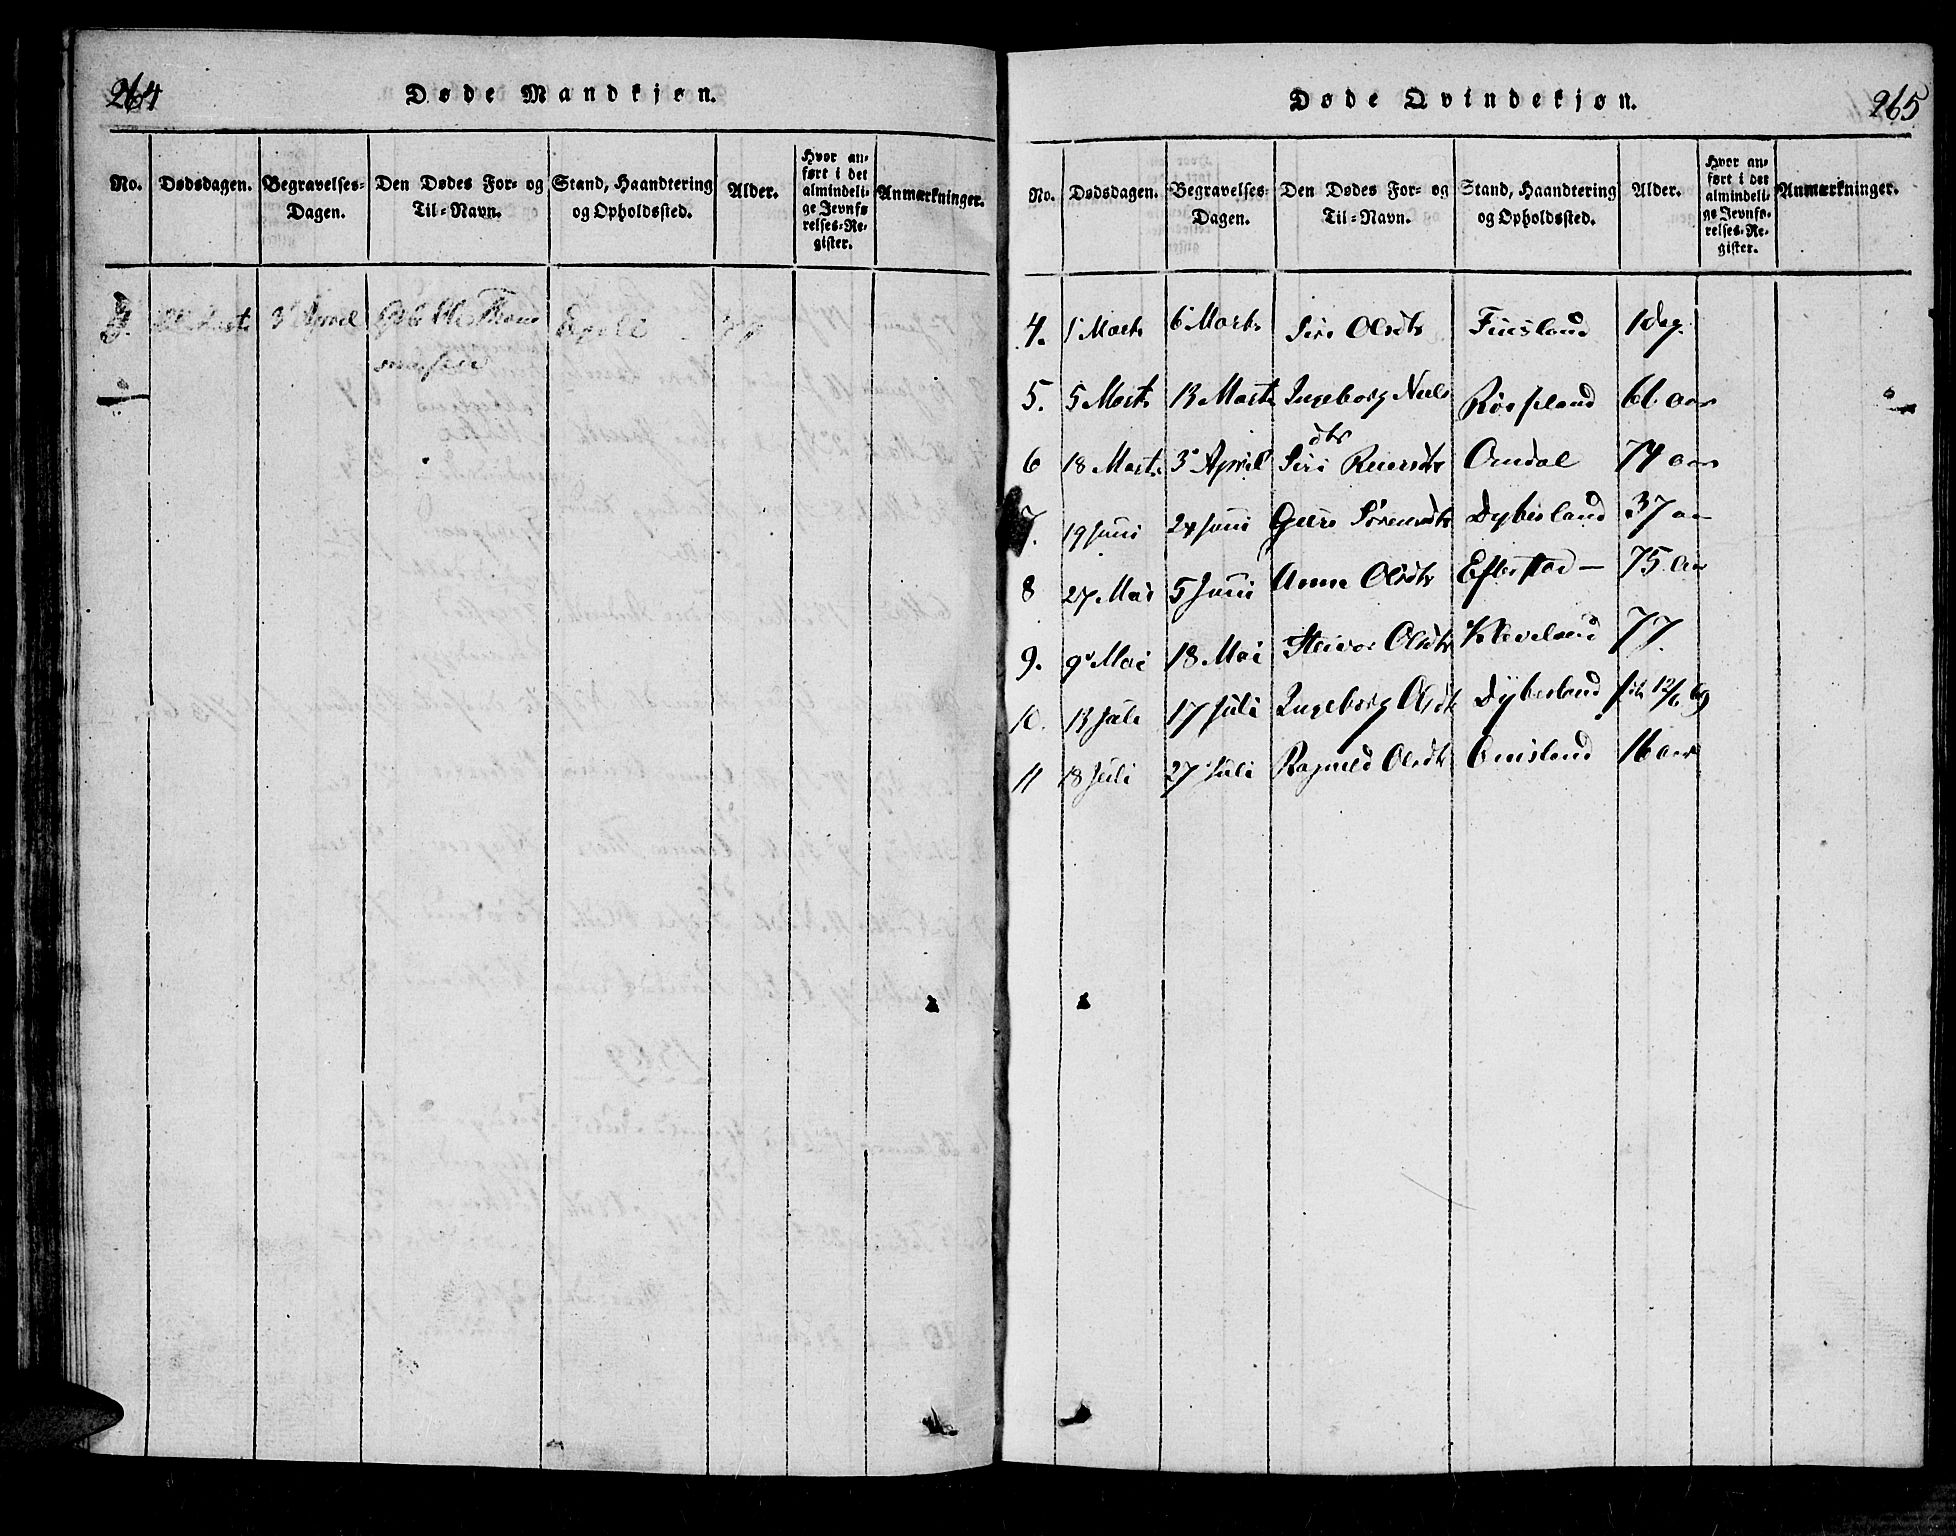 264
Døde Mandkjøn.
No. Dødsdagen. Begravelses-Dagen. Den Dødes For- og Til-Navn. Stand, Haandtering og Opholdssted. Alder. Hvor anført i det almindelige Jevnførelses-Register. Anmærkninger.
3 April
265
Døde Qvindekjøn.
No. Dødsdagen. Begravelses-Dagen. Den Dødes For- og Til-Navn. Stand, Haandtering og Opholdssted. Alder. Hvor anført i det almindelige Jevnførelses-Register. Anmærkninger.
4. 1 Marts 6 Marts Siri Olsdtr Fuesland 1 dag.
5. 5 Marts 13 Marts Ingeborg Nielsdtr Røisland 66 aar
6 18 Marts 3 April Siri Reiersdtr Omdal 74 aar
7. 19 Juni 24 Juni Sørensdtr Dybesland 37 aar
8 27 Mai 5 Juni Anna Olsdtr Eftestad 75 aar
9. 9 Mai 18 Mai Steivor Olsdtr Kleveland 77
10. 13 Juli 17 Juli Ingeborg Olsdtr Dybesland 12/6 69
11 18 Juli 27 Juli Ragnild Olsdtr Omsland 16 aar